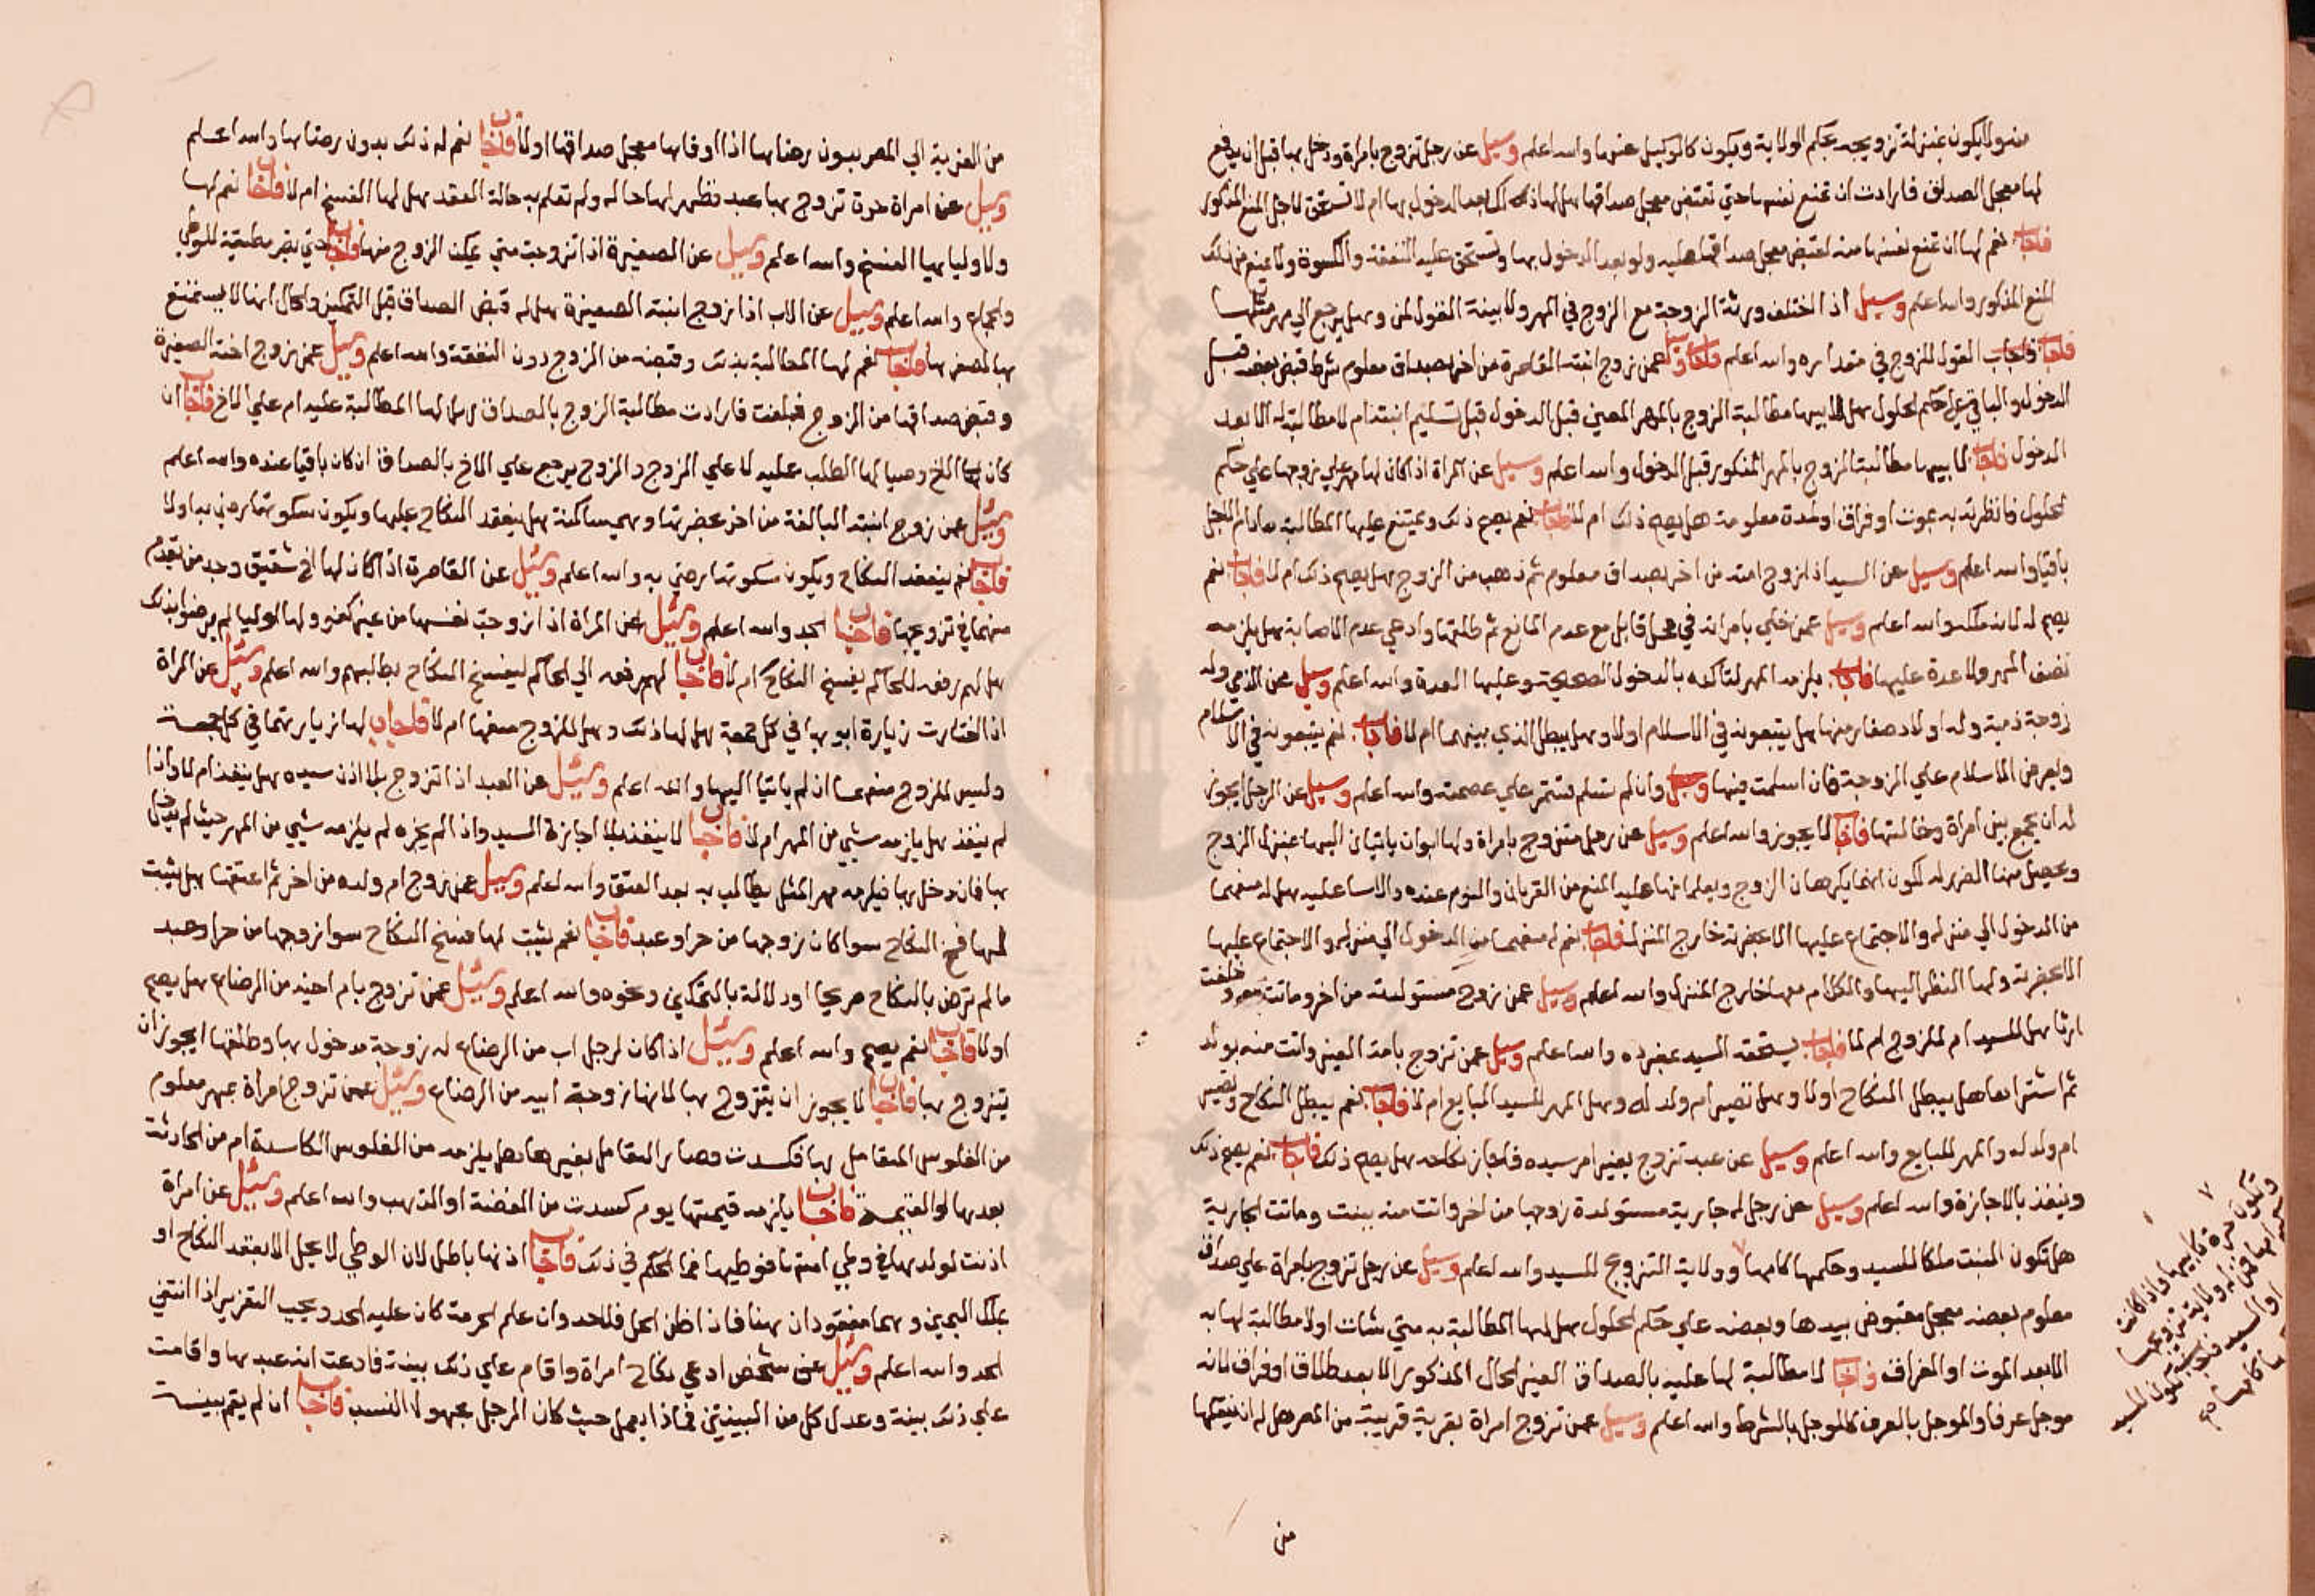 منو لا يكون بمنزلة تزويجه بحكم الولاية ويكون كالوكيل عنهما والله اعلم وسيل عن رجل تزوج بامراة ودخل بها قبل ان يدفع
لها معجل الصداق فارادت ان تمنع نفسها حتي تقتض معجل صداقها هل لها ذلك بعد الدخول بها ام لا تستحق لاجل المنع المذكور
فاجاب نعم لها ان تمنع نفسها منه لقبض معجل صداقها عليه ولو بعد الدخول بها وتستحق عليه النفقة والكسوة ولا يمنع من ذلك
المنع المذكور والله اعلم وسيل اذا اختلف ورثة الزوجة مع الزوج في المهر ولا بينة القول لمن وهل يرجع الي مهر مثلها
فاجاب القول للزوج في مقداره والله اعلم وسيل عمن زوج ابنته القاصرة من اخر بصداق معلوم شرط قبض بعضه قبل
الدخول والباقي علي حكم الحلول هل لابيها مطالبة الزوج بالمهر المعين قبل الدخول قبل تسليم ابنته ام لا مطالبة له الا بعد
الدخول فاجاب لابيها مطالبة الزوج بالمهر المذكور قبل الدخول والله اعلم وسيل عن المراة اذا كان لها مهر علي زوجها علي حكم
الحلول فانظرته به بموت او فراق او لمدة معلومة هل يصح ذلك ام لا فاجاب نعم يصح ذلك ويمتنع عليها المطالبة مادام الاجل
باقيا والله اعلم وسيل عن السيد اذا زوج امته من اخر بصداق معلوم ثم ذهب من الزوج هل يصح ذلك ام لا فاجاب نعم
يصح له لانه ملكه والله اعلم وسيل عمن خلي بامراته في محل قابل مع عدم المانع ثم طلقها وادعي عدم الاصابة هل يلزمه
نصف المهر ولا عدة عليها فاجاب يلزمه المهر لتاكده بالدخول الصحيح وعليها العدة والله اعلم وسيل عن الذمي وله
زوجة ذمية وله اولاد صغار منها هل يتبعونه في الاسلام اولا وهل يبطل الذي بينهما ام لا فاجاب نعم يتبعونه في الاسلام
ويعرض الاسلام علي الزوجة فان اسلمت فيها وان لم تسلم تستمر علي عصمته والله اعلم وسيل عن الرجل ايجوز
له ان يجمع بين امراة وخالتها فاجاب لا يجوز والله اعلم وسيل عن رجل متزوج بامراة ولها ابوان ياتيان اليها بمنزل الزوج
ويحصل منها الضرر له لكون انهما يكرهان الزوج ويعلمانها عليه المنع من القربان والنوم عنده والاسا عليه هل له منعهما
من الدخول الي منزله والاجتماع عليها الا بحضرته خارج المنزل فاجاب نعم له منعهما من الدخول الي منزله والاجتماع عليها
الا بحضرته ولها النظر اليها والكلام معها خارج المنزل والله اعلم وسيل عمن زوج مستولدته من اخر وماتت وخلفت
ارثا هل للسيد ام للزوج ام لا فاجاب يستحقه السيد بمفرده والله اعلم وسيل عمن تزوج بامة الغير واتت منه بولد
ثم اشتراها هل يبطل النكاح اولا وهل تصير ام ولد له وهل المهر للسيد البايع ام لا فاجاب نعم يبطل النكاح وتصير
ام ولد له والمهر للبايع والله اعلم وسيل عن عبد تزوج بغير امر سيده فاجاز نكاحه هل يصح ذلك فاجاب نعم يصح ذلك
وينفذ بالاجازة والله اعلم وسيل عن رجل له جارية مستولدة زوجها من اخر واتت منه ببنت وماتت الجارية
هل تكون البنت ملكا للسيد وحكمها كامها وولاية التزويج للسيد والله اعلم وسيل عن رجل تزوج بامراة علي صداق
معلوم بعضه معجل مقبوض بيدها وبعضه علي حكم الحلول هل لها المطالبة به متي شات او لا مطالبة لها به
الا بعد الموت او الفراق فاجاب لا مطالبة لها عليه بالصداق الغير الحال المذكور الا بعد طلاق او فراق لانه
موجل عرفا والموجل بالعرف كالموجل بالشرط والله اعلم وسيل عمن تزوج امراة بقرية قريبة من المصر هل له ان ينقلها
من
من القرية الي المصر بدون رضاها اذا اوفاها معجل صداقها اولا فاجاب نعم له ذلك بدون رضاها والله اعلم
وسيل عن امراة حرة تزوج بها عبد فظهر لها حاله ولم تعلم به حالة العقد هل لها الفسخ ام لا فاجاب نعم لها
ولاوليايها الفسخ والله اعلم وسيل عن الصغيرة اذا تزوجت متي يمكن الزوج منها فاجاب حتي تصير مطيقة للوطي
والجماع والله اعلم وسيل عن الاب اذا زوج ابنته الصغيرة هل له قبض الصداق قبل التمكين والحال انها لا يستمتع
بها لصغرها فاجاب نعم لها المطالبة بذلك وقبضه من الزوج دون النفقة والله اعلم وسيل عمن زوج اخته الصغيرة
وقبض صداقها من الزوج فبلغت فارادت مطالبة الزوج بالصداق هل لها المطالبة عليه ام علي الاخ فاجاب ان
كان الاخ وصيا لها الطلب عليه لا علي الزوج والزوج يرجع علي الاخ بالصداق ان كان باقيا عنده والله اعلم
وسئيل عمن زوج ابنته البالغة من اخر بحضرتها وهي ساكتة هل ينعقد النكاح عليها ويكون سكوتها رضي به اولا
فاجاب نعم ينعقد النكاح ويكون سكوتها رضي به والله اعلم وسئيل عن القاصرة اذا كان لها اخ شقيق وجد من يقدم
منهما في تزويجها فاجاب الجد والله اعلم وسئيل عن المراة اذا زوجت نفسها من غير كفو ولها اوليا لم يرضوا بذلك
هل لهم رفعه للحاكم يفسخ النكاح ام لا فاجاب لهم رفعه الي الحاكم ليفسخ النكاح بطلبهم والله اعلم وسئيل عن المراة
اذا اختارت زيارة ابويها في كل جمعة هل لها ذلك وهل للزوج منعها ام لا فاجاب لها زيارتهما في كل جمعة
وليس للزوج منعها ان لم ياتيا اليها والله اعلم وسئيل عن العبد اذا تزوج بلا اذن سيده هل ينفذ ام لا واذا
لم ينفذ هل يلزمه شيي من المهر ام لا فاجاب لا ينفذ بلا اجازة السيد واذا لم يجزه لم يلزمه شيي من المهر حيث لم يدخل
بها فان دخل بها فيلزمه مهر المثل يطالب به بعد العتق والله اعلم وسيل عمن زوج ام ولده من اخر ثم اعتقها هل يثبت
لها فسخ النكاح سوا كان زوجها من حر او عبد فاجاب نعم يثبت لها فسخ النكاح سوا زوجها من حر او عبد
ما لم ترض بالنكاح صريحا او دلالة بالتمكين ونحوه والله اعلم وسئيل عمن تزوج بام اخيه من الرضاع هل يصح
اولا فاجاب نعم يصح والله اعلم وسئيل اذا كان لرجل اب من الرضاع له زوجة مدخول بها وطلقها ايجوز ان
يتزوج بها فاجاب لا يجوز ان يتزوج بها لانها زوجة ابيه من الرضاع وسئيل عمن تزوج امراة بمهر معلوم
من الفلوس المتعامل بها فكسدت وصار التعامل بغيرها هل يلزمه من الفلوس الكاسدة ام من الحادثة
بعدها او القيمة فاجاب يلزمه قيمتها يوم كسدت من الفضة او الذهب والله اعلم وسئيل عن امراة
اذنت لولدها في وطي امتها فوطيها فما الحكم في ذلك فاجاب اذنها باطل لان الوطي لا يحل الا بعقد النكاح او
بملك اليمين وهما مفقودان هنا فاذا ظن الحل فلا حد وان علم الحرمة كان عليه الحد ويجب التعزير اذا انتفي
الحد والله اعلم وسئيل عن شخص ادعي نكاح امراة واقام علي ذلك بينة فادعت انه عبدها واقامت
علي ذلك بينة وعدل كل من البينتين فماذا يعمل حيث كان الرجل مجهول النسب فاجاب ان لم يقم بينة